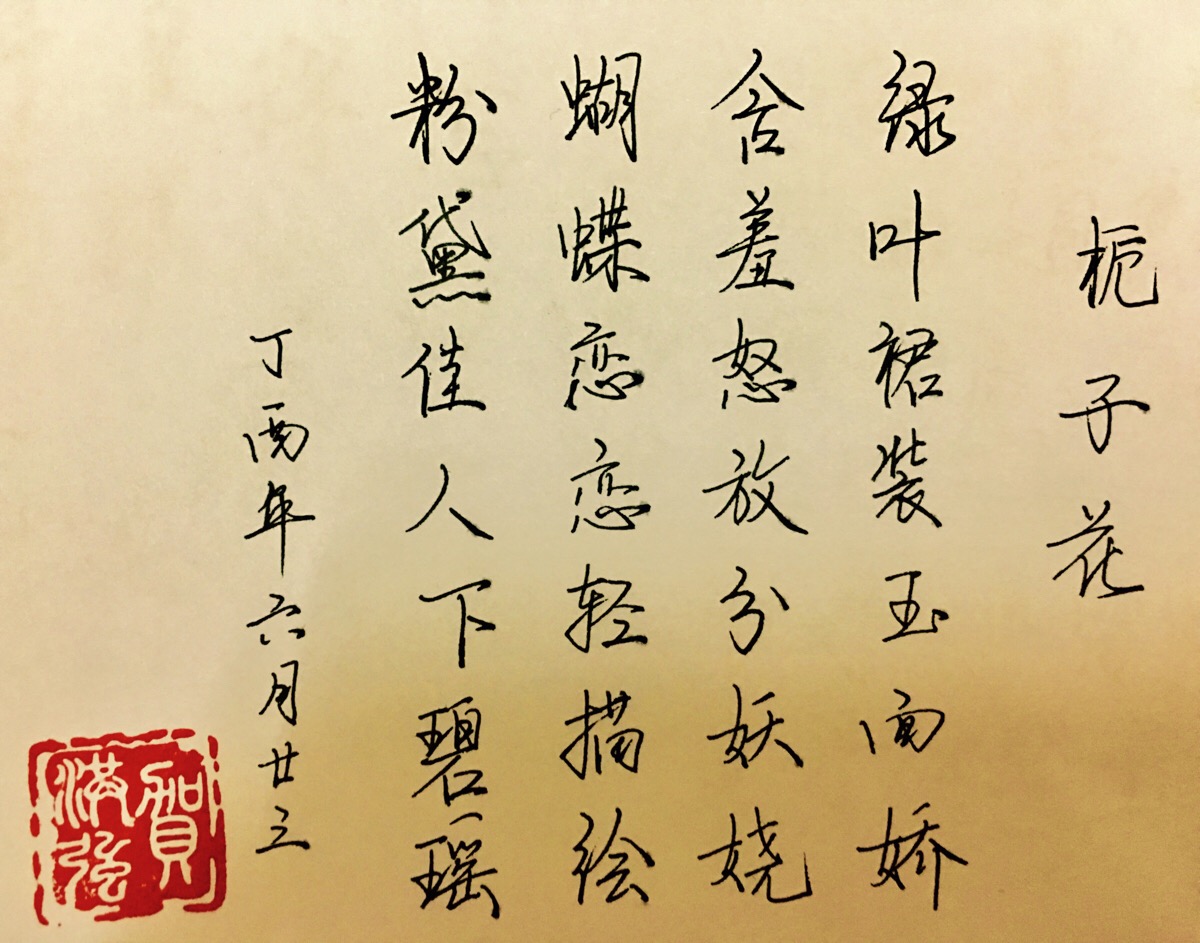 栀子花
绿叶裙装玉面娇
含羞怒放分妖娆
蝴蝶恋恋轻描绘
粉黛佳人下碧瑶
丁酉年六月廿三
贺满弦